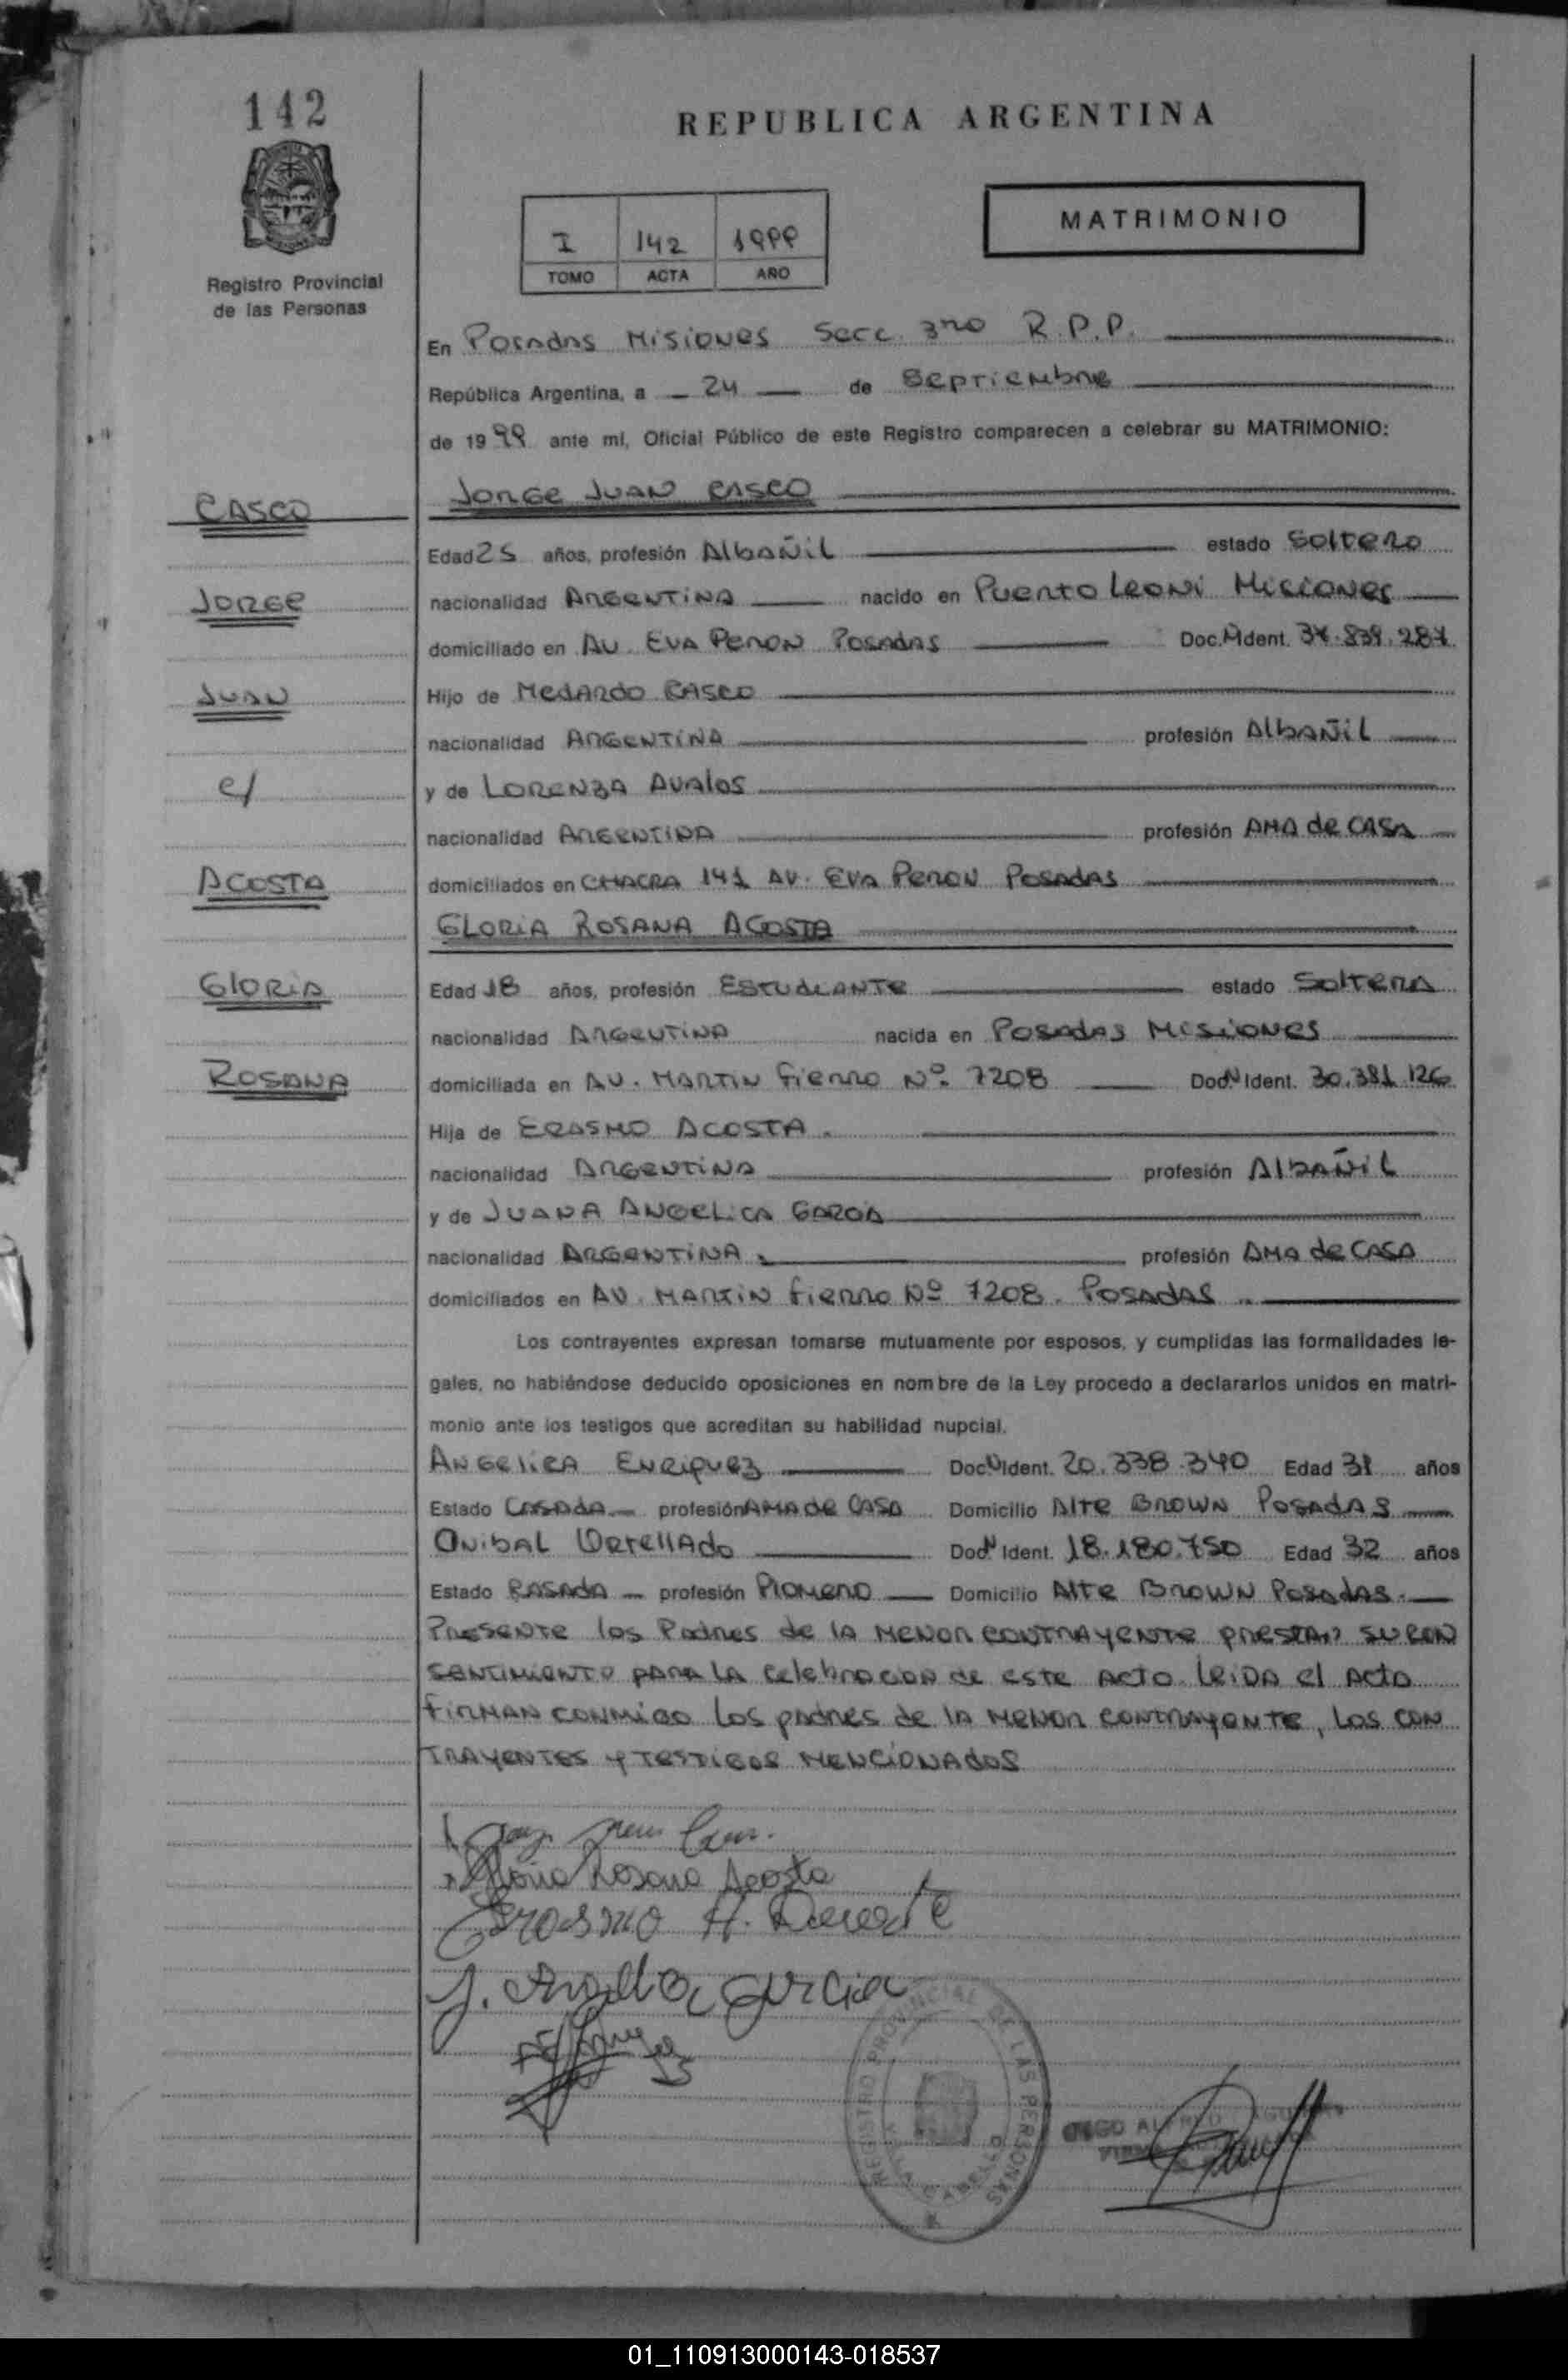 142
REPUBLICA ARGENTINA
MATRIMONIO
Registro Provincial
de las Personas
I 142 1999
TOMO ACTA AÑO
En Posadas Misiones Secc. 3ra R.P.P.
República Argentina, a 24 de Septiembre
de 1999 ante mí, Oficial Público de este Registro comparecen a celebrar su MATRIMONIO:
CASCO
JORGE JUAN CASCO
Edad 25 años, profesión Albañil estado Soltero
JORGE
nacionalidad ARGENTINA nacido en Puerto Leoni Misiones
domiciliado en AV. EVA PERON POSADAS Doc. N Ident.
JUAN
Hijo de MEDARDO CASCO
nacionalidad ARGENTINA profesión AlbAÑiL
c/
y de LORENZA AVALOS
nacionalidad ARGENTINA profesión AMA de CASA
ACOSTA
domiciliados en CHACRA 141 AV. EVA PERON POSADAS
GLORIA ROSANA ACOSTA
GLORIA
Edad 18 años, profesión ESTUDIANTE estado Soltera
nacionalidad ARGENTINA nacida en POSADAS MISIONES
ROSANA
domiciliada en AV. MARTIN Fierro Nº 7208 Doc. N Ident. 30.381.126
Hija de ERASMO ACOSTA.
nacionalidad ARGENTINA profesión AlbAÑiL
y de JUANA ANGELICA GARCIA
nacionalidad ARGENTINA. profesión AMA de CASA
domiciliados en AV. MARTIN Fierro Nº 7208. POSADAS
Los contrayentes expresan tomarse mutuamente por esposos, y cumplidas las formalidades le-
gales, no habiéndose deducido oposiciones en nombre de la Ley procedo a declararlos unidos en matri-
monio ante los testigos que acreditan su habilidad nupcial.
ANGELICA ENRIQUEZ Doc. N Ident. 20.338.340 Edad 31 años
Estado CASADA profesión AMA de CASA Domicilio Alte BROWN POSADAS
ANIBAL Doc. N Ident. 18.180.750 Edad 32 años
Estado CASADA profesión Domicilio Alte BROWN POSADAS.
PRESENTE los Padres de la MENOR CONTRAYENTE PRESTAN SU CON
SENTIMIENTO PARA LA celebracion de este ACTO. LEIDA el ACTA
FIRMAN CONMIGO Los padres de la MENOR CONTRAYENTE, Los CON
TRAYENTES y TESTIGOS MENCIONADOS
Gloria Rosana Acosta
Erasmo H. Acosta
J. Angelica garcia
REGISTRO PROVINCIAL DE LAS PERSONAS
VILLA CABELLO
01_110913000143-018537